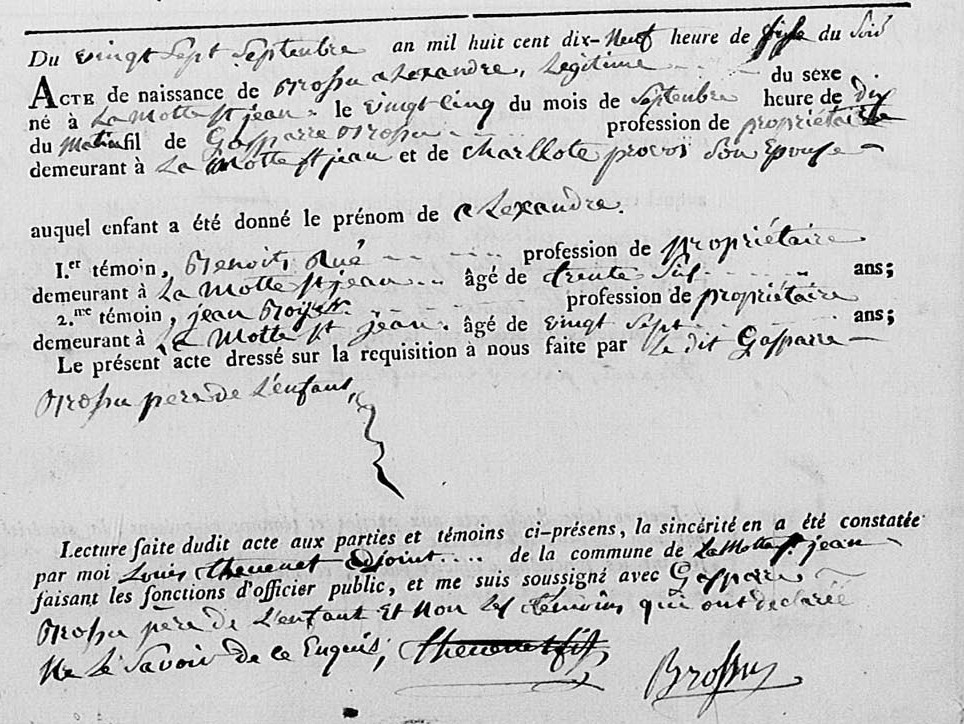 Du vingt Sept Septembre an mil huit cent dix-Neuf heure de six du Soir
ACTE de naissance de Brossu alexandre, Legitime du sexe
né à La Motte st jean le vingt Cinq du mois de Septembre heure de dix
du Matin fil de Gasparre Brossu profession de propriétaire
demeurant à La Motte st jean et de Charllote provos Son Epouse
auquel enfant a été donné le prénom de aLexandre.
I.er témoin, Benoit Rué profession de propriétaire
demeurant à La Motte st jean âgé de trente Six ans;
2.me témoin, jean profession de propriétaire
demeurant à La Motte st jean. âgé de vingt Sept ans;
Le présent acte dressé sur la requisition à nous faite par Le dit Gaspare
Brossu père de L'enfant,
Lecture faite dudit acte aux parties et témoins ci-présens, la sincérité en a été constatée
par moi Louis thevenet adjoint de la commune de La Motte st jean
faisant les fonctions d'officier public, et me suis soussigné avec Gaspare
Brossu père de L'enfant Et Non Les témoins qui ont declaré
Ne Le Savoir de ce Enquis, thevenet fils Brossu